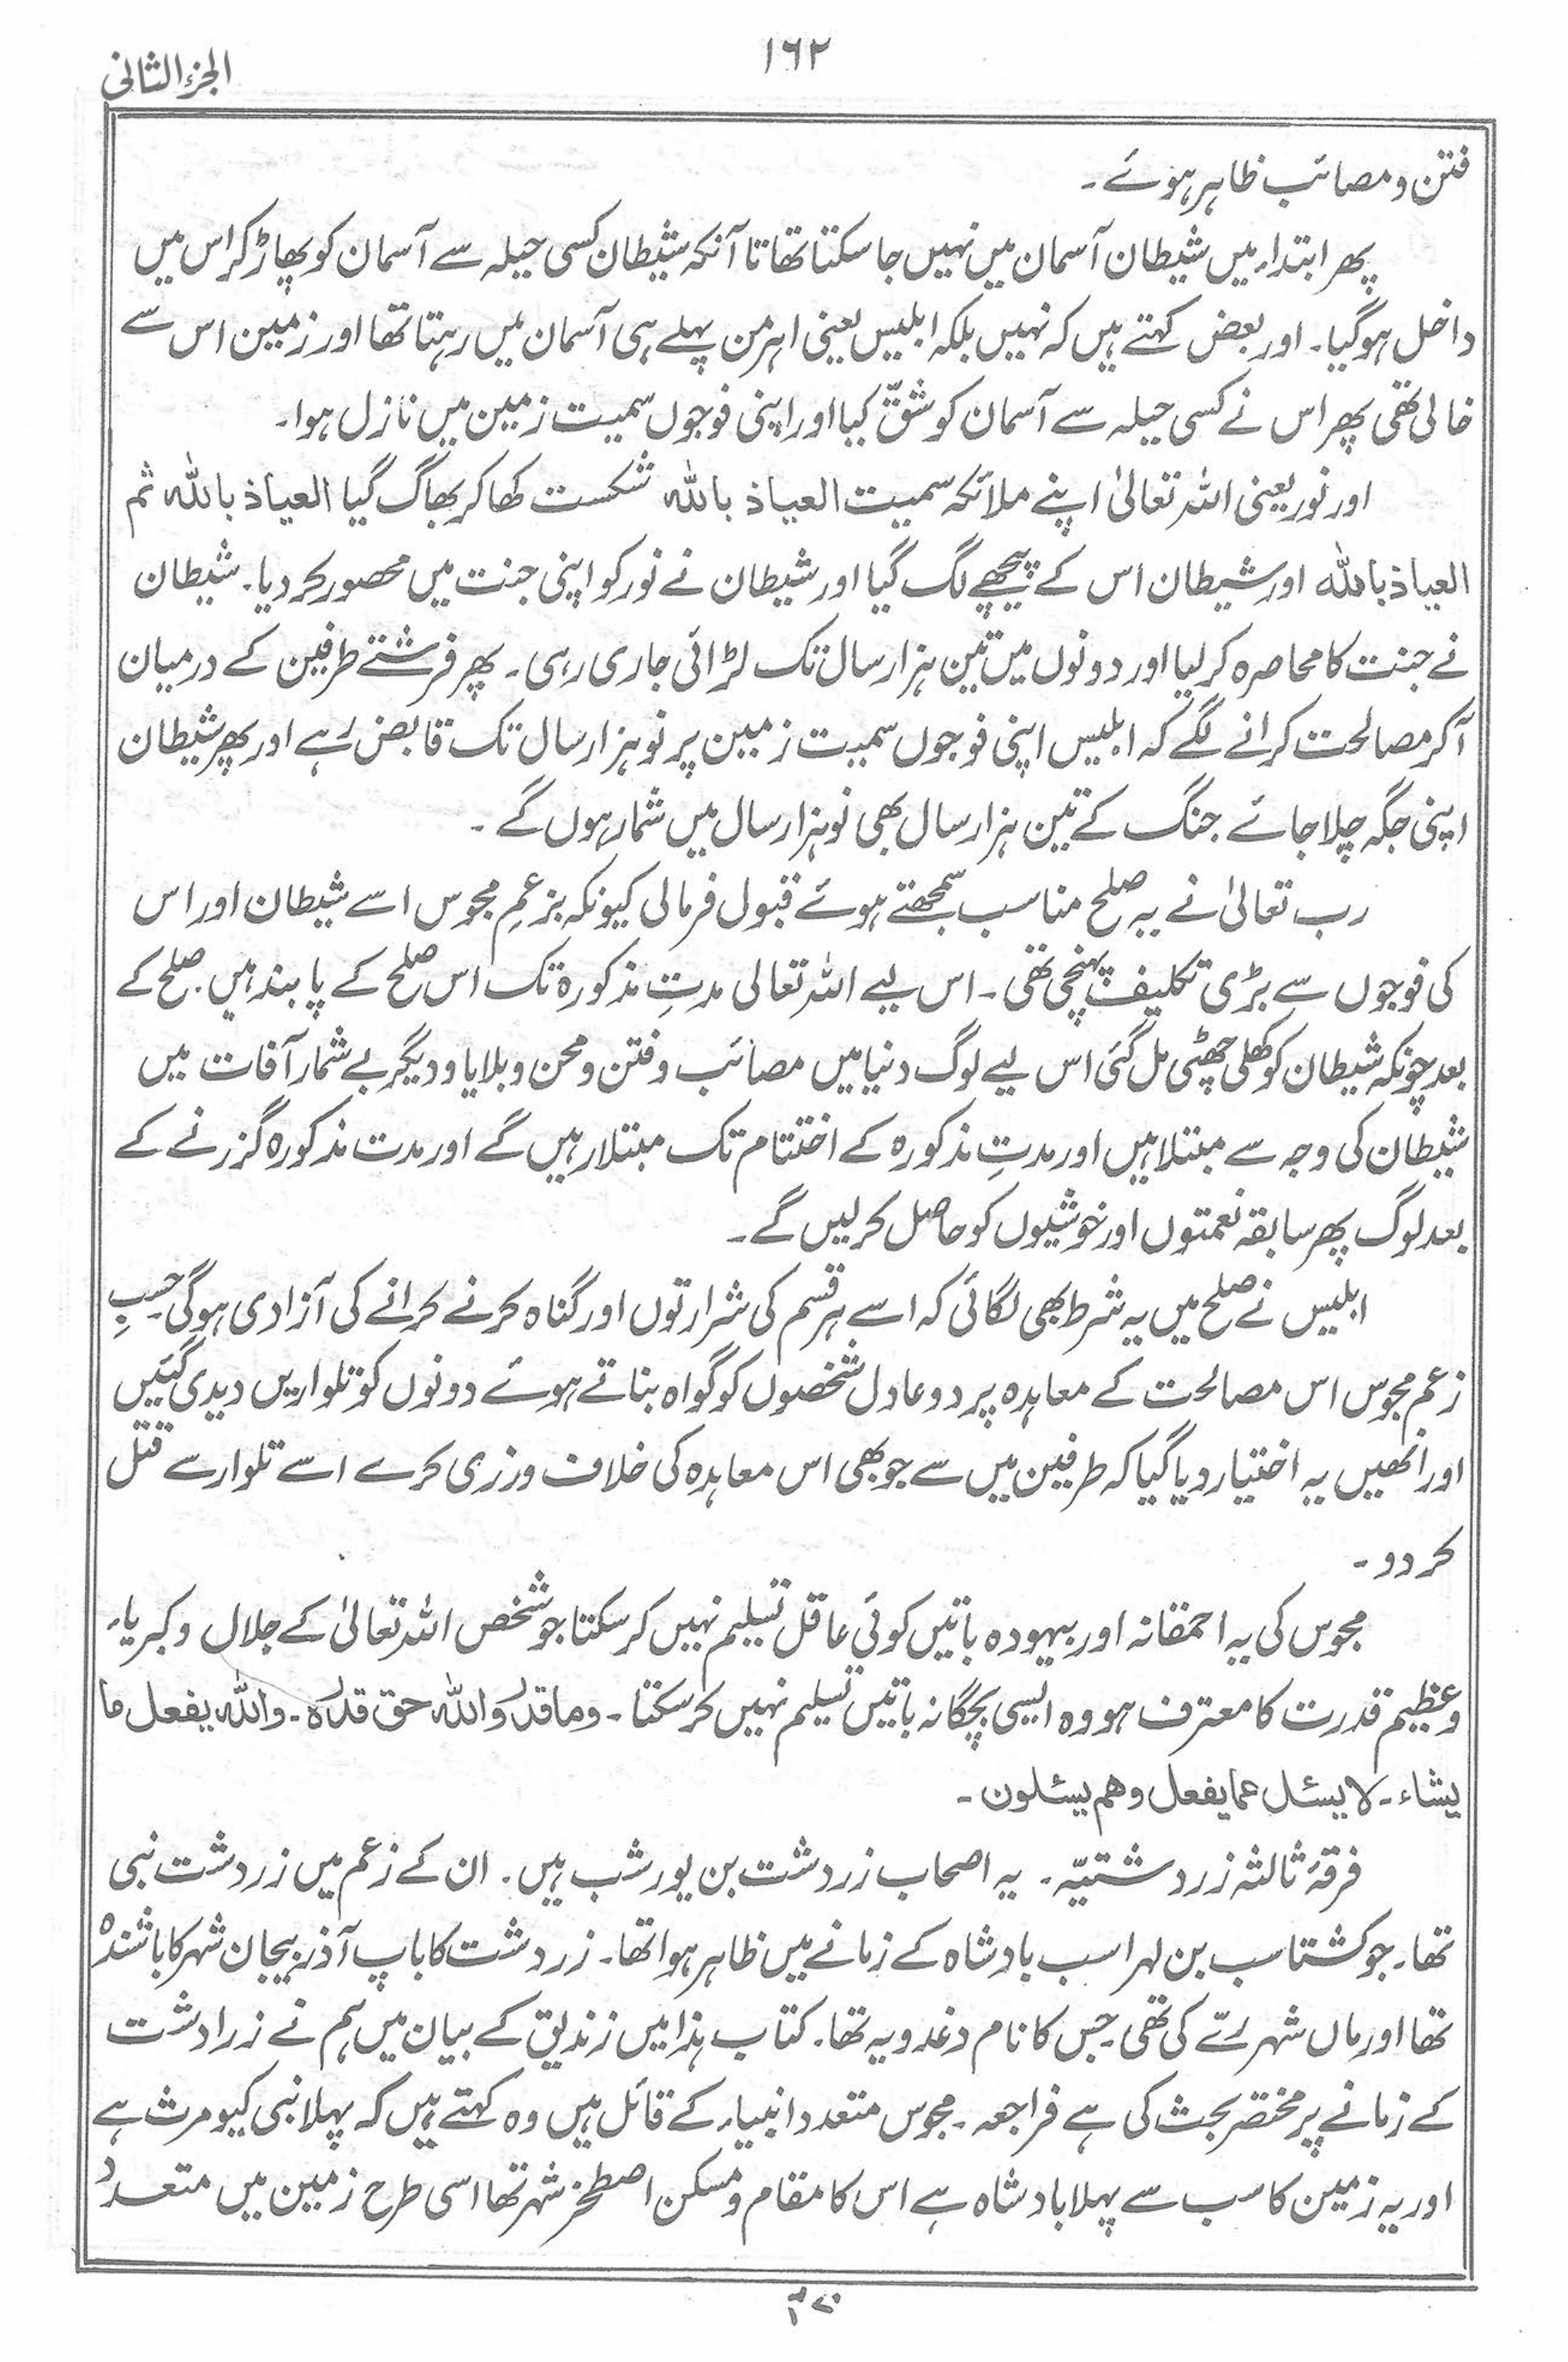 الجزء الثانی
۱۶۲
فتن و مصائب ظاہر ہوئے ۔
پھر ابتداء میں شیطان آسمان میں نہیں جا سکتا تھا تا آنکہ شیطان کسی حیلہ سے آسمان کو پھاڑ کر اس میں
داخل ہوگیا۔ اور بعض کہتے ہیں کہ نہیں بلکہ ابلیس یعنی اہرمن پہلے ہی آسمان میں رہتا تھا اور زمین اس سے
خالی تھی پھر اس نے کسی حیلہ سے آسمان کو شقّ کیا اور اپنی فوجوں سمیت زمین میں نازل ہوا۔
اور نور یعنی اللہ تعالیٰ اپنے ملائکہ سمیت العیاذ باللہ شکست کھا کر بھاگ گیا العیاذ باللہ ثم
العیاذ باللہ اور شیطان اس کے پیچھے لگ گیا اور شیطان نے نور کو اپنی جنت میں محصور کر دیا۔ شیطان
نے جنت کا محاصرہ کر لیا اور دونوں میں تین ہزار سال تک لڑائی جاری رہی۔ پھر فرشتے طرفین کے درمیان
آکر مصالحت کرانے لگے کہ ابلیس اپنی فوجوں سمیت زمین پر نو ہزار سال تک قابض رہے اور پھر شیطان
اپنی جگہ چلا جائے جنگ کے تین ہزار سال بھی نو ہزار سال میں شمار ہوں گے ۔
رب تعالیٰ نے یہ صلح مناسب سمجھتے ہوئے قبول فرمالی کیونکہ بزعمِ مجوس اسے شیطان اور اس
کی فوجوں سے بڑی تکلیف پہنچی تھی ۔ اس لیے اللہ تعالی مدتِ مذکورۃ تک اس صلح کے پابند ہیں۔ صلح کے
بعد چونکہ شیطان کو کھلی چھٹی مل گئی اس لیے لوگ دنیا میں مصائب و فتن و محن و بلایا و دیگر بے شمار آفات میں
شیطان کی وجہ سے مبتلا ہیں اور مدتِ مذکورہ کے اختتام تک مبتلا رہیں گے اور مدت مذکورہ گزرنے کے
بعد لوگ پھر سابقہ نعمتوں اور خوشیوں کو حاصل کر لیں گے ۔
ابلیس نے صلح میں یہ شرط بھی لگائی کہ اسے ہر قسم کی شرارتوں اور گناہ کرنے کرانے کی آزادی ہوگی حسبِ
زعم مجوس اس مصالحت کے معاہدہ پر دو عادل شخصوں کو گواہ بناتے ہوئے دونوں کو تلواریں دیدی گئیں
اور انھیں یہ اختیار دیا گیا کہ طرفین میں سے جو بھی اس معاہدہ کی خلاف ورزی کرے اسے تلوار سے قتل
کر دو ۔
مجوس کی یہ احمقانہ اور بیہودہ باتیں کوئی عاقل تسلیم نہیں کرسکتا جو شخص اللہ تعالیٰ کے جلال و کبریاء
و عظیم قدرت کا معترف ہو وہ ایسی بچگانہ باتیں تسلیم نہیں کر سکتا ۔ وما قدرُوا اللہ حق قدرِہ ۔ واللہ یفعل ما
یشاء ۔ لا یسئل عما یفعل وھم یسئلون ۔
فرقۂ ثالثہ زردشتیّہ ۔ یہ اصحاب زردشت بن یورشب ہیں۔ ان کے زعم میں زردشت نبی
تھا۔ جو کشتاسب بن لہراسب بادشاہ کے زمانے میں ظاہر ہوا تھا۔ زردشت کا باپ آذربیجان شہر کا باشندہ
تھا اور ماں شہر رے کی تھی۔ جس کا نام دغدویہ تھا۔ کتاب ہذا میں زندیق کے بیان میں ہم نے زرادشت
کے زمانے پر مختصر بحث کی ہے فراجعہ ۔ مجوس متعدد انبیاء کے قائل ہیں وہ کہتے ہیں کہ پہلا نبی کیومرث ہے
اور یہ زمین کا سب سے پہلا بادشاہ ہے اس کا مقام و مسکن اصطخر شہر تھا اسی طرح زمین میں متعدد